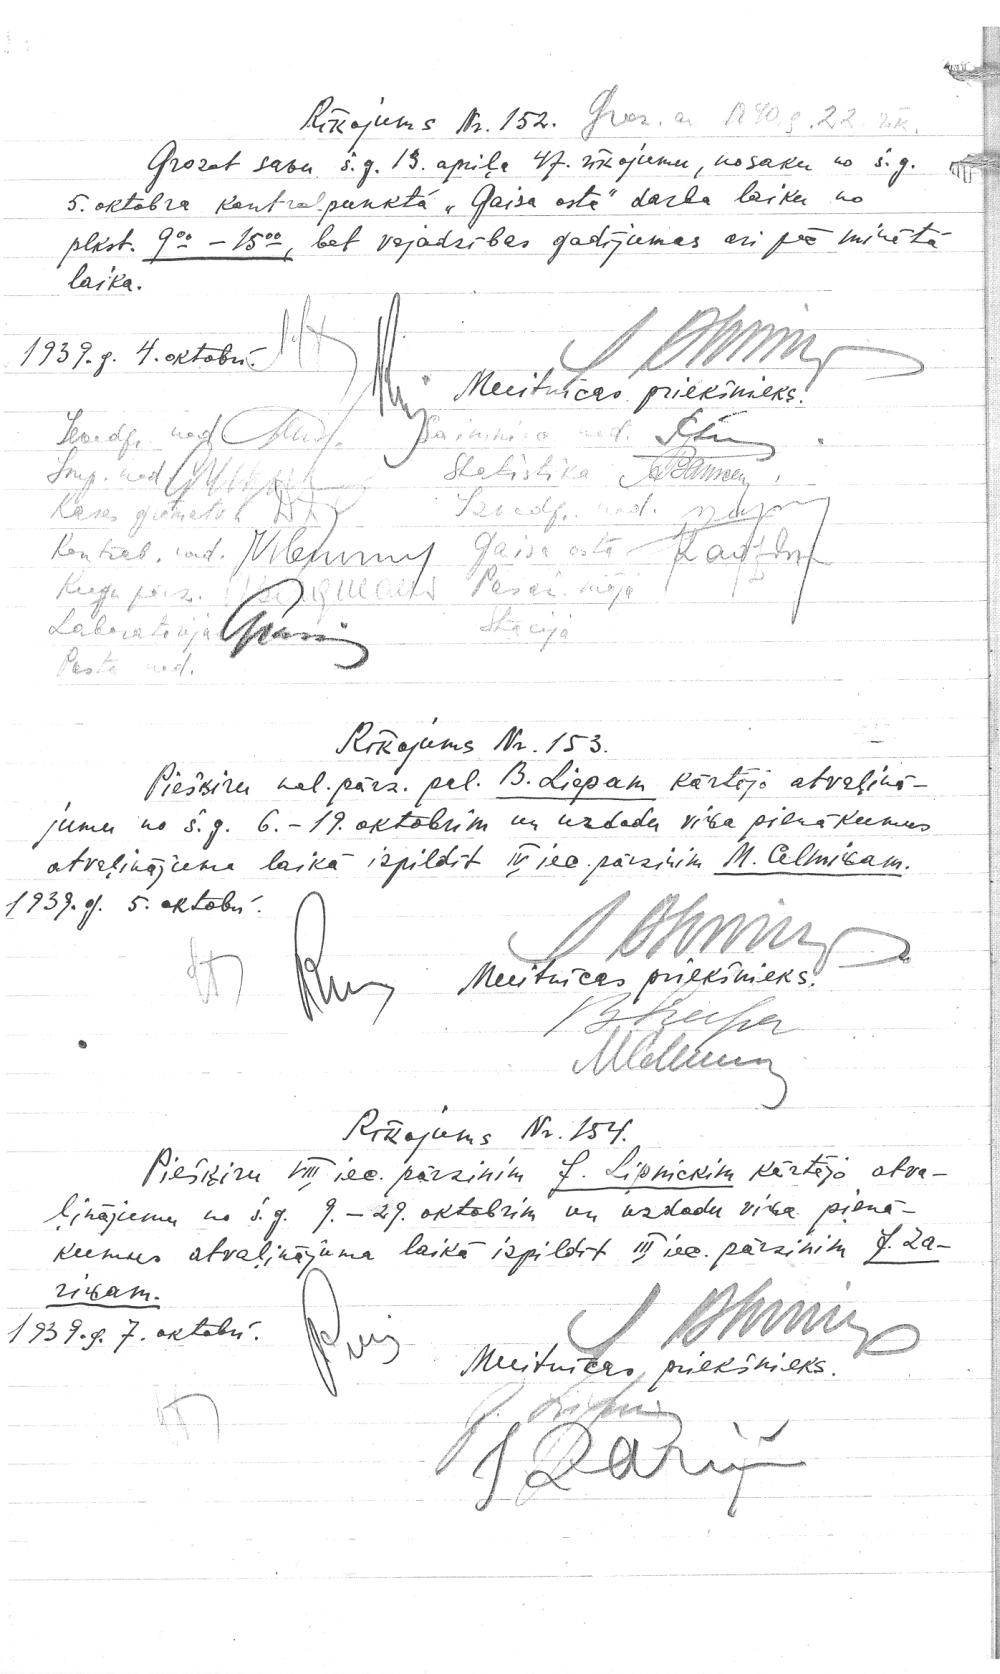 Rīkojums Nr. 152. Groz. a 1940.g. 22. rīk.
Grozot savu š.g. 13. apriļa 47. rīkojumu, nosaku no š.g.
5. oktobra kontrolpunktā „Gaisa osta" darba laiku no
plkst. 9⁰⁰ – 15⁰⁰, bet vajadzības gadījumos arī pēc minētā
laika.
1939.g. 4. oktobrī.
Muitnīcas priekšnieks.
Izvedf. nod. Saimniec. nod.
Imp. nod. Statistika
Kases grāmatv. Izvedf. nod.
Kontrab. nod. Gaisa osta
Kuģu pārz. Pasaž. māja
Laboratorija Stacija
Pasta nod.
Rīkojums Nr. 153.
Piešķiru nol. pārz. pal. B. Liepam kārtējo atvaļinā-
jumu no š.g. 6. – 19. oktobrim un uzdodu viņa pienākumus
atvaļinājuma laikā izpildīt IV iec. pārzinim M. Celmiņam.
1939.g. 5. oktobrī.
Muitnīcas priekšnieks.
Rīkojums Nr. 154.
Piešķiru VIII iec. pārzinim J. Lipnickim kārtējo atva-
ļinājumu no š.g. 9. – 29. oktobrim un uzdodu viņa pienā-
kumus atvaļinājuma laikā izpildīt III iec. pārzinim J. Za-
riņam.
1939.g. 7. oktobrī.
Muitnīcas priekšnieks.
J Zariņš